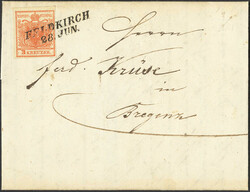 FELDKIRCH
28. JUN.
3 KREUZER
Herrn
ferd. Krüse
in
Bregenz